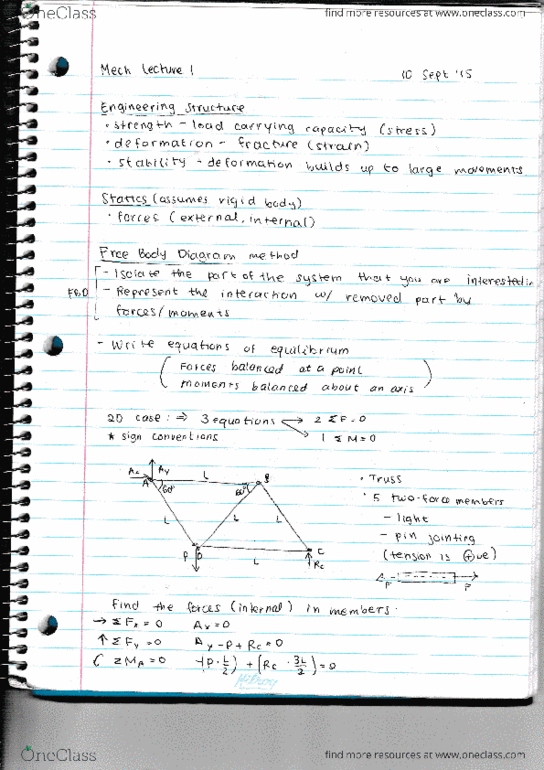 OneClass
find more resources at www.oneclass.com
Mech Lecture 1
10 Sept '15
Engineering Structure
• strength - load carrying capacity (stress)
• deformation - fracture (strain)
• stability - deformation builds up to large movements
Statics (assumes rigid body)
• forces (external, internal)
Free Body Diagram method
- Isolate the part of the system that you are interested in
FBD
- Represent the interaction w/ removed part by
forces/moments
- Write equations of equilibrium
(Forces balanced at a point
moments balanced about an axis)
2D case: ⇒ 3 equations → 2 ΣF=0
* sign conventions → 1 ΣM=0
Ax Ay L B
A 60° 60°
L L L
P D C
L Rc
• Truss
• 5 two-force members
- light
- pin jointing
(tension is +ve)
P P
Find the forces (internal) in members.
→ ΣFx = 0 Ax=0
↑ ΣFy = 0 Ay-P+Rc=0
ΣMA=0 -(P·L/2) + (Rc · 3L/2)=0
OneClass
find more resources at www.oneclass.com